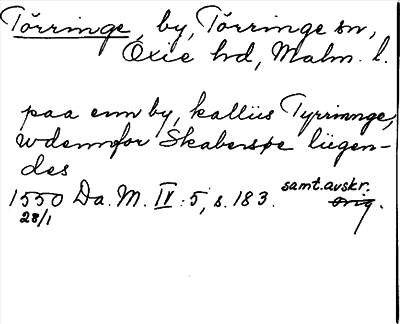 Törringe, by, Törringe sn,
Oxie hd, Malm. l.
paa enn by, kallüs Tyrrinnge,
wdennfor Skabersøe lügen-
des
1550 Da. M. IV:5, s. 183. samt.avskr.
28/1 orig.